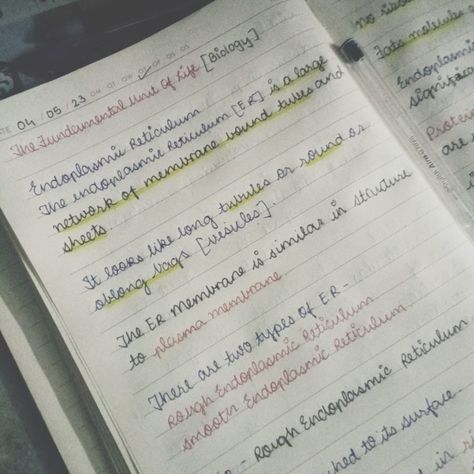 DATE 04 / 05 / 23
The Fundamental Unit Of Life [Biology]
Endoplasmic Reticulum
The endoplasmic Reticulum [ER] is a large
network of membrane bound tubes and
sheets
It looks like long tubules or round or
oblong bags [vesicles].
The ER membrane is similar in structure
to plasma membrane.
There are two types of ER-
Rough Endoplasmic Reticulum
smooth Endoplasmic Reticulum
- Rough Endoplasmic Reticulum
to its surface.
no
Fats molecules
Endoplasmi
significa
Protei
are